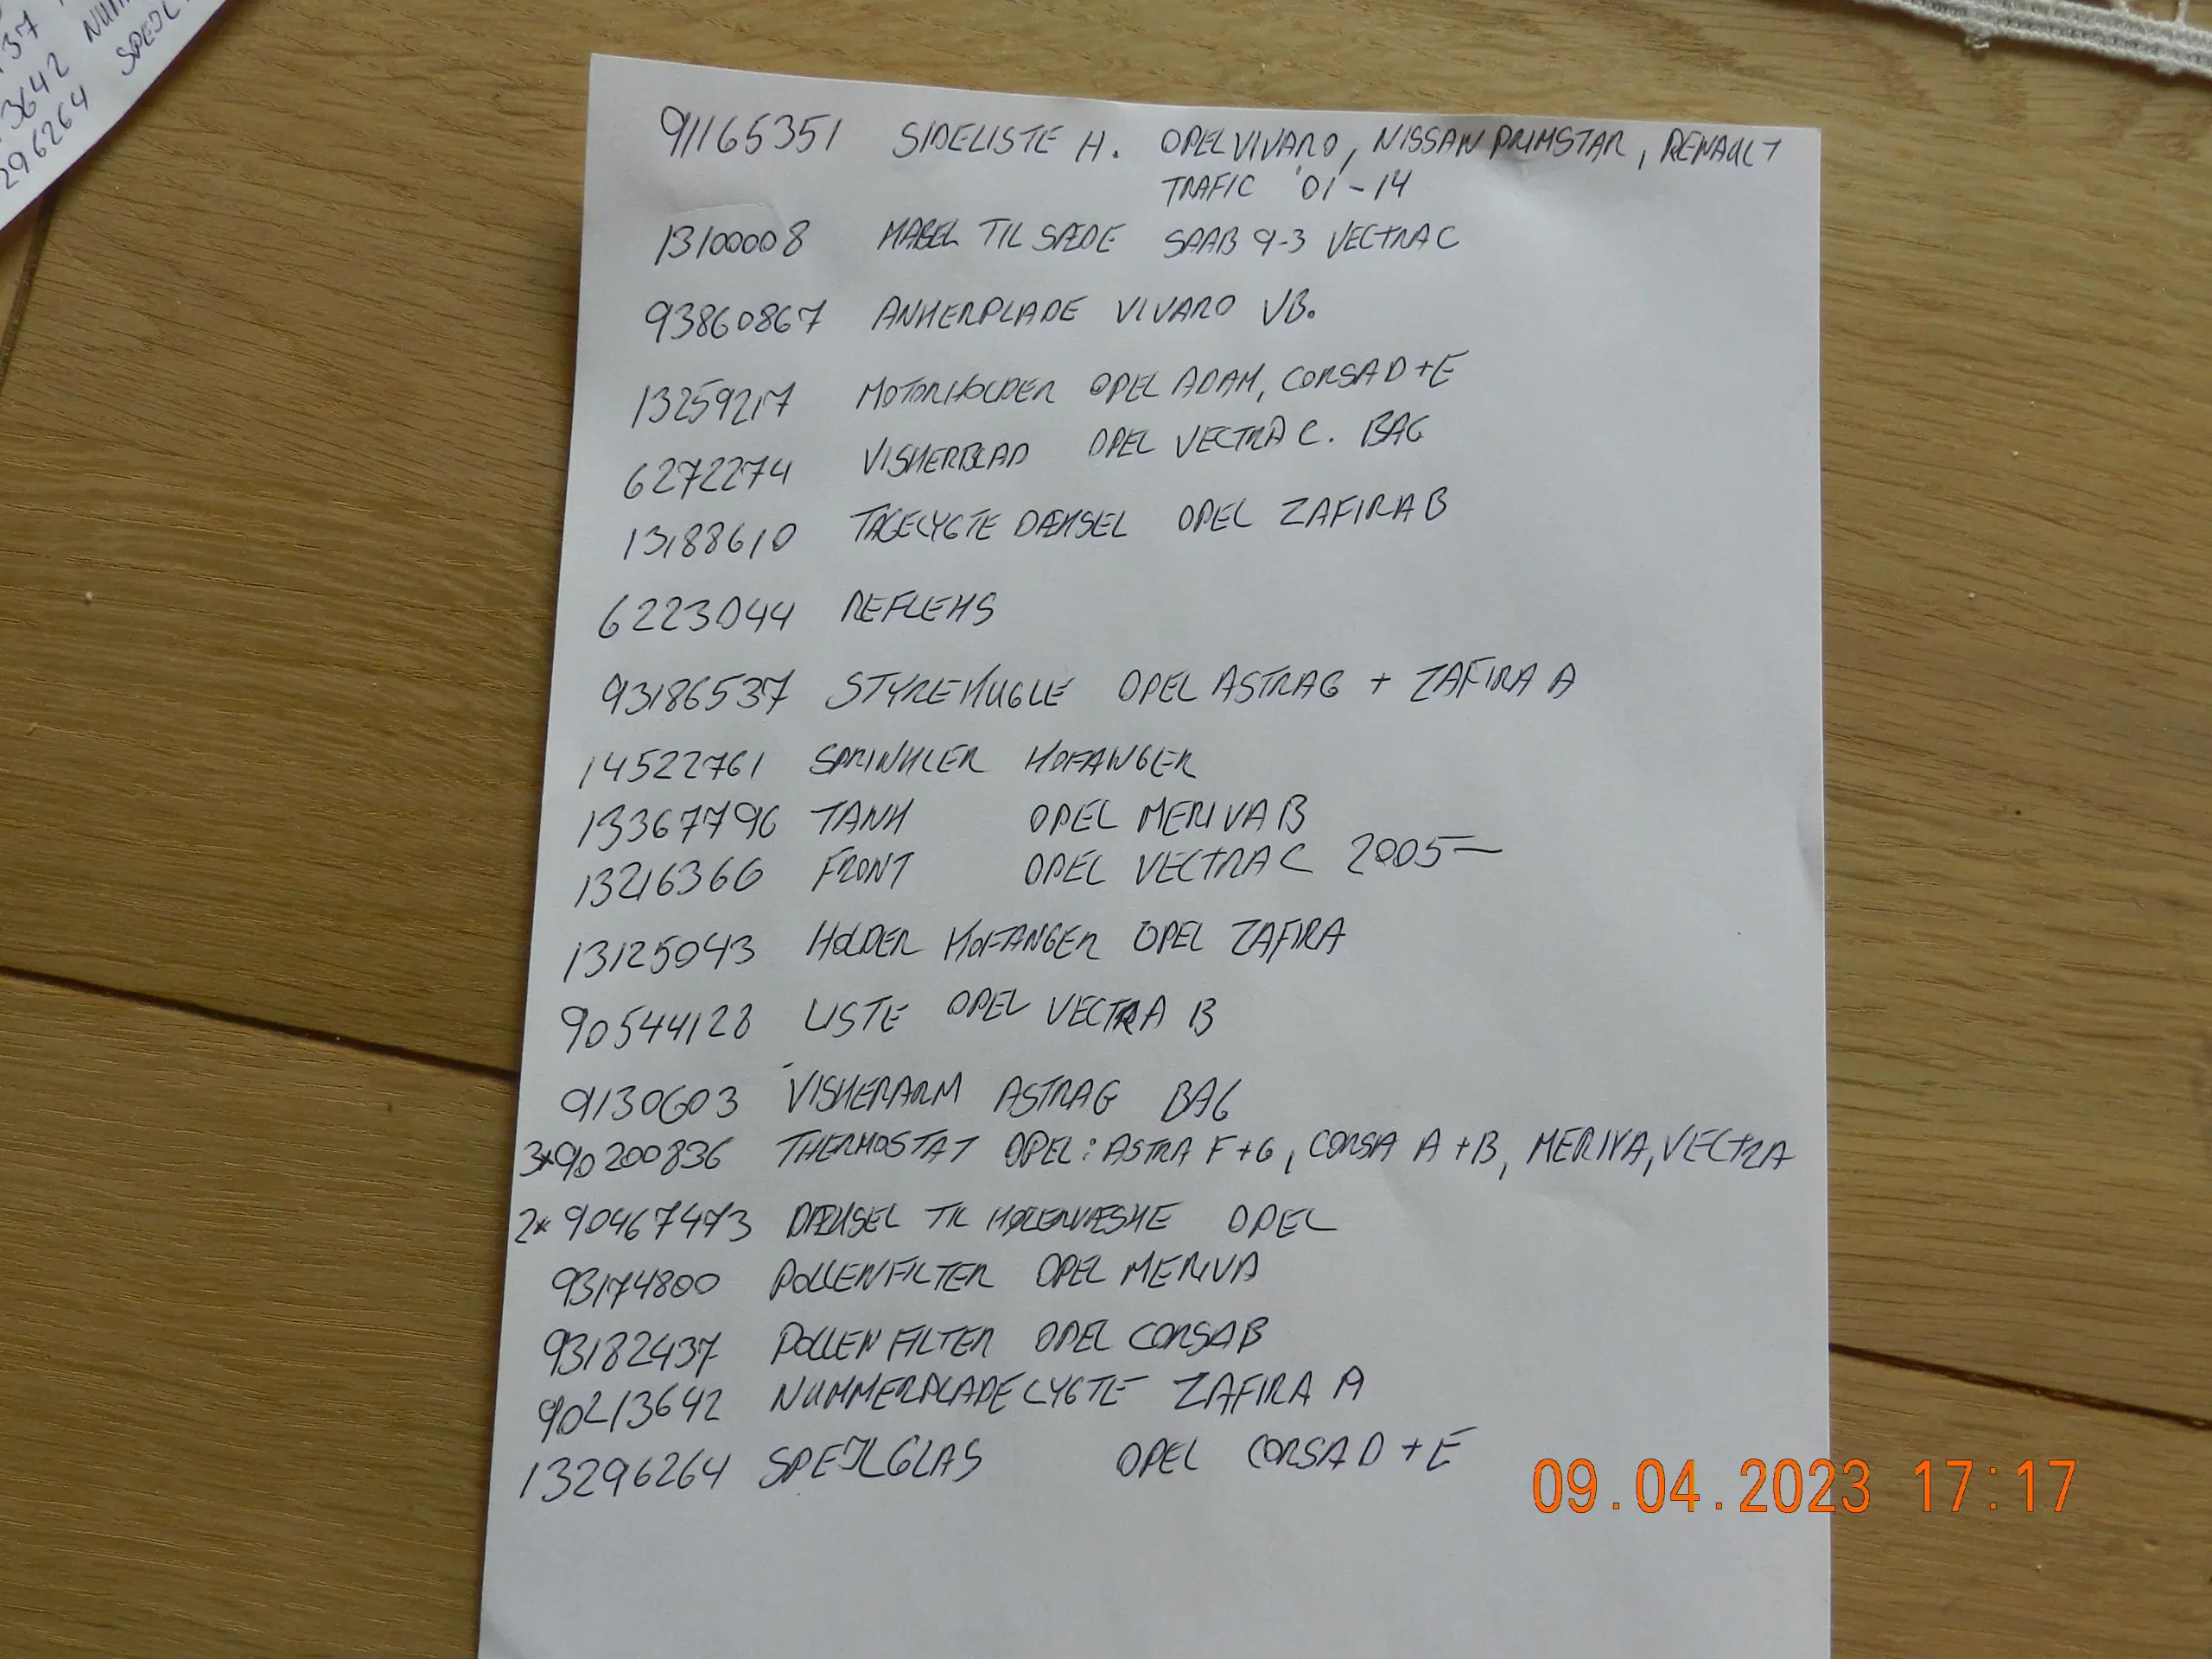 37
3642 NUM
296264 SPEJL
91165351 SIDELISTE H. OPEL VIVARO, NISSAN PRIMSTAR, RENAULT
TRAFIC '01-14
13100008 KABEL TIL SÆDE SAAB 9-3 VECTRA C
93860867 ANKERPLADE VIVARO VB.
13259217 MOTORHOLDER OPEL ADAM, CORSA D+E
6272274 VISKERBLAD OPEL VECTRA C. BAG
13188610 TÅGELYGTE DÆKSEL OPEL ZAFIRA B
6223044 REFLEKS
93186537 STYREKUGLE OPEL ASTRA G + ZAFIRA A
14522761 SPRINKLER KOFANGER
13367796 TANK OPEL MERIVA B
13216366 FRONT OPEL VECTRA C 2005-
13125043 HOLDER KOFANGER OPEL ZAFIRA
90544128 LISTE OPEL VECTRA B
9130603 VISKERARM ASTRA G BAG
3x90200836 THERMOSTAT OPEL: ASTRA F+G, CORSA A+B, MERIVA, VECTRA
2x 90467473 DÆKSEL TIL KØLERVÆSKE OPEL
93174800 POLLENFILTER OPEL MERIVA
93182437 POLLENFILTER OPEL CORSA B
90213642 NUMMERPLADELYGTE ZAFIRA A
13296264 SPEJLGLAS OPEL CORSA D+E
09.04.2023 17:17